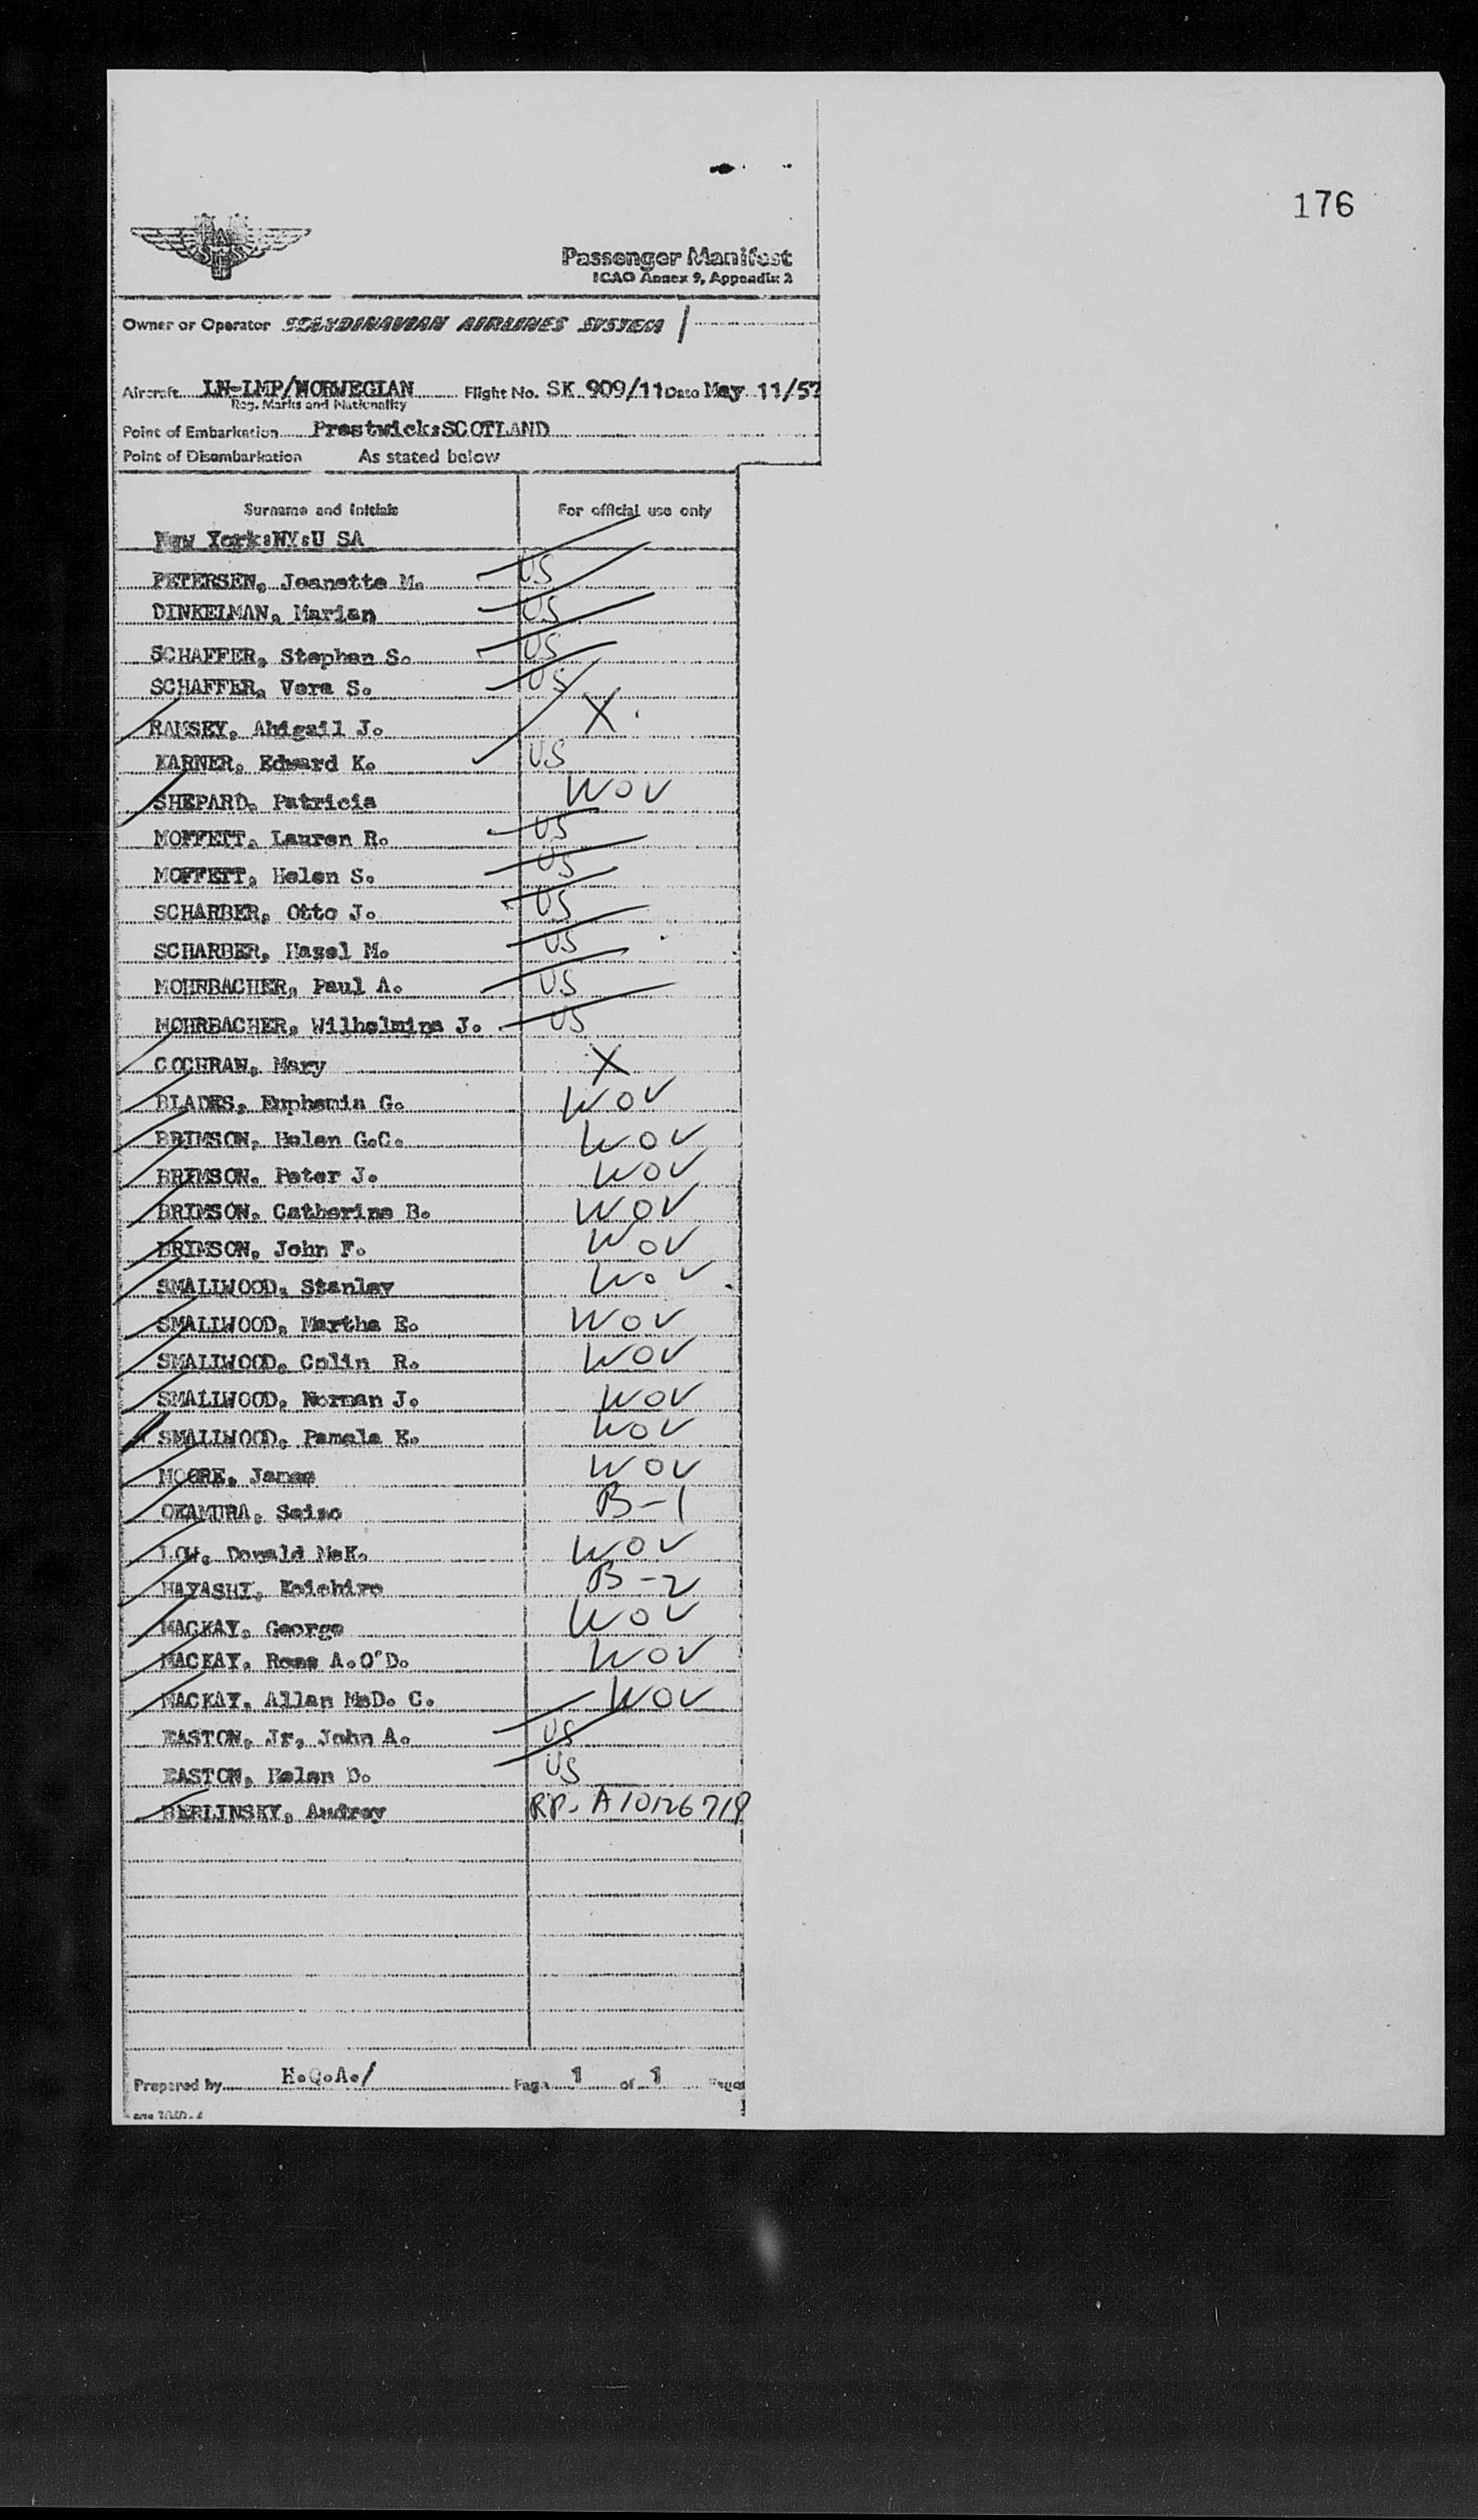 176
Passenger Manifest
ICAO Annex 9, Appendix 2
Owner or Operator SCANDINAVIAN AIRLINES SYSTEM
Aircraft LN-LMP/NORWEGIAN Flight No. SK 909/11 Date May 11/57
Reg. Marks and Nationality
Point of Embarkation Prestwick:SCOTLAND
Point of Disembarkation As stated below
Surname and Initials For official use only
New York:NY:U SA
PETERSEN, Jeanette M. US
DINKELMAN, Marian US
SCHAFFER, Stephen S. US
SCHAFFER, Vera S. US
RAMSEY, Abigail J. X
KARNER, Edward K. US
SHEPARD, Patricia WOV
MOFFETT, Lauren R. US
MOFFETT, Helen S. US
SCHARBER, Otto J. US
SCHARBER, Hazel M. US
MOHRBACHER, Paul A. US
MOHRBACHER, Wilhelmina J. US
COCHRAN, Mary X
BLADES, Euphemia G. WOV
BRIMSON, Helen G.C. WOV
BRIMSON, Peter J. WOV
BRIMSON, Catherine B. WOV
BRIMSON, John F. WOV
SMALLWOOD, Stanley WOV
SMALLWOOD, Martha E. WOV
SMALLWOOD, Colin R. WOV
SMALLWOOD, Norman J. WOV
SMALLWOOD, Pamela E. WOV
MOORE, James WOV
OKAMURA, Seiso B-1
LOW, Donald McK. WOV
HAYASHI, Koichiro B-2
MACKAY, George WOV
MACKAY, Rose A.O'D. WOV
MACKAY, Allan McD. C. WOV
EASTON, Jr, John A. US
EASTON, Helen D. US
BERLINSKY, Audrey RP- A10126719
Prepared by H.Q.A./ Page 1 of 1 Pages